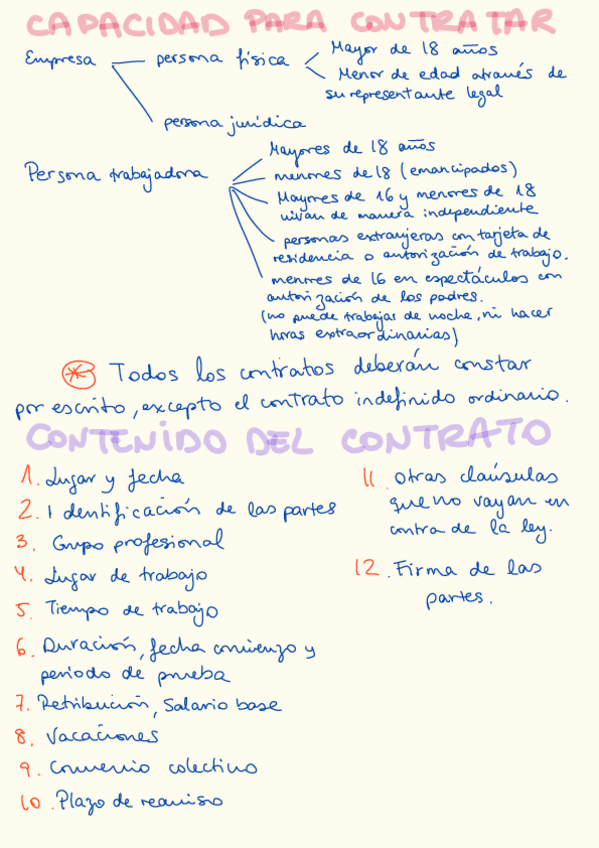 CAPACIDAD PARA CONTRATAR
Empresa
persona física
Mayor de 18 años
Menor de edad através de
su representante legal
persona jurídica
Persona trabajadora
Mayores de 18 años
menores de 18 (emancipados)
Mayores de 16 y menores de 18
vivan de manera independiente
personas extranjeras con tarjeta de
residencia o autorización de trabajo.
menores de 16 en espectáculos con
autorización de los padres.
(no puede trabajar de noche, ni hacer
horas extraordinarias)
* Todos los contratos deberán constar
por escrito, excepto el contrato indefinido ordinario.
CONTENIDO DEL CONTRATO
1. Lugar y fecha
2. Identificación de las partes
3. Grupo profesional
4. Lugar de trabajo
5. Tiempo de trabajo
6. Duración, fecha comienzo y
periodo de prueba
7. Retribución, Salario base
8. Vacaciones
9. Convenio colectivo
10. Plazo de preaviso
11. otras claúsulas
que no vayan en
contra de la ley.
12. Firma de las
partes.